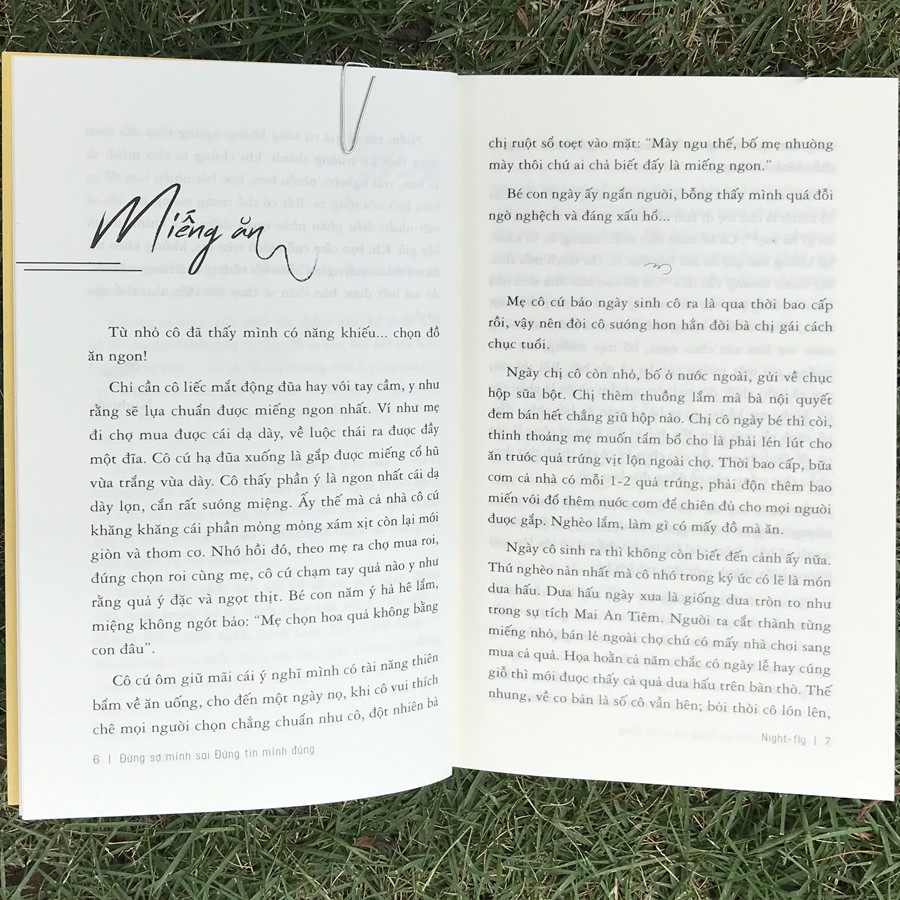 Miếng ăn
Từ nhỏ cô đã thấy mình có năng khiếu... chọn đồ
ăn ngon!
Chỉ cần cô liếc mắt động đũa hay với tay cầm, y như
rằng sẽ lựa chuẩn được miếng ngon nhất. Ví như mẹ
đi chợ mua được cái dạ dày, về luộc thái ra được đầy
một đĩa. Cô cứ hạ đũa xuống là gắp được miếng cổ hũ
vừa trắng vừa dày. Cô thấy phần ý là ngon nhất cái dạ
dày lợn, cắn rất sướng miệng. Ấy thế mà cả nhà cô cứ
khăng khăng cái phần mỏng mỏng xám xịt còn lại mới
giòn và thơm cơ. Nhớ hồi đó, theo mẹ ra chợ mua roi,
đứng chọn roi cùng mẹ, cô cứ chạm tay quả nào y như
rằng quả ý đặc và ngọt thịt. Bé con năm ý hả hê lắm,
miệng không ngớt bảo: “Mẹ chọn hoa quả không bằng
con đâu”.
Cô cứ ôm giữ mãi cái ý nghĩ mình có tài năng thiên
bẩm về ăn uống, cho đến một ngày nọ, khi cô vui thích
chê mọi người chọn chẳng chuẩn như cô, đột nhiên bà
6 | Đừng sợ mình sai Đừng tin mình đúng
chị ruột sổ toẹt vào mặt: “Mày ngu thế, bố mẹ nhường
mày thôi chứ ai chả biết đấy là miếng ngon.”
Bé con ngày ấy ngẩn người, bỗng thấy mình quá đỗi
ngờ nghệch và đáng xấu hổ...
Mẹ cô cứ bảo ngày sinh cô ra là qua thời bao cấp
rồi, vậy nên đời cô sướng hơn hẳn đời bà chị gái cách
chục tuổi.
Ngày chị cô còn nhỏ, bố ở nước ngoài, gửi về chục
hộp sữa bột. Chị thèm thuồng lắm mà bà nội quyết
đem bán hết chẳng giữ hộp nào. Chị cô ngày bé thì còi,
thỉnh thoảng mẹ muốn tẩm bổ cho là phải lén lút cho
ăn trước quả trứng vịt lộn ngoài chợ. Thời bao cấp, bữa
cơm cả nhà có mỗi 1-2 quả trứng, phải độn thêm bao
miến với đổ thêm nước cơm để chiên đủ cho mọi người
được gắp. Nghèo lắm, làm gì có mấy đồ mà ăn.
Ngày cô sinh ra thì không còn biết đến cảnh ấy nữa.
Thứ nghèo nàn nhất mà cô nhớ trong ký ức có lẽ là món
dưa hấu. Dưa hấu ngày xưa là giống dưa tròn to như
trong sự tích Mai An Tiêm. Người ta cắt thành từng
miếng nhỏ, bán lẻ ngoài chợ chứ có mấy nhà chơi sang
mua cả quả. Họa hoằn cả năm chắc có ngày lễ hay cúng
giỗ thì mới được thấy cả quả dưa hấu trên bàn thờ. Thế
nhưng, về cơ bản là số cô vẫn hên; bởi thời cô lớn lên,
Night-fly | 7